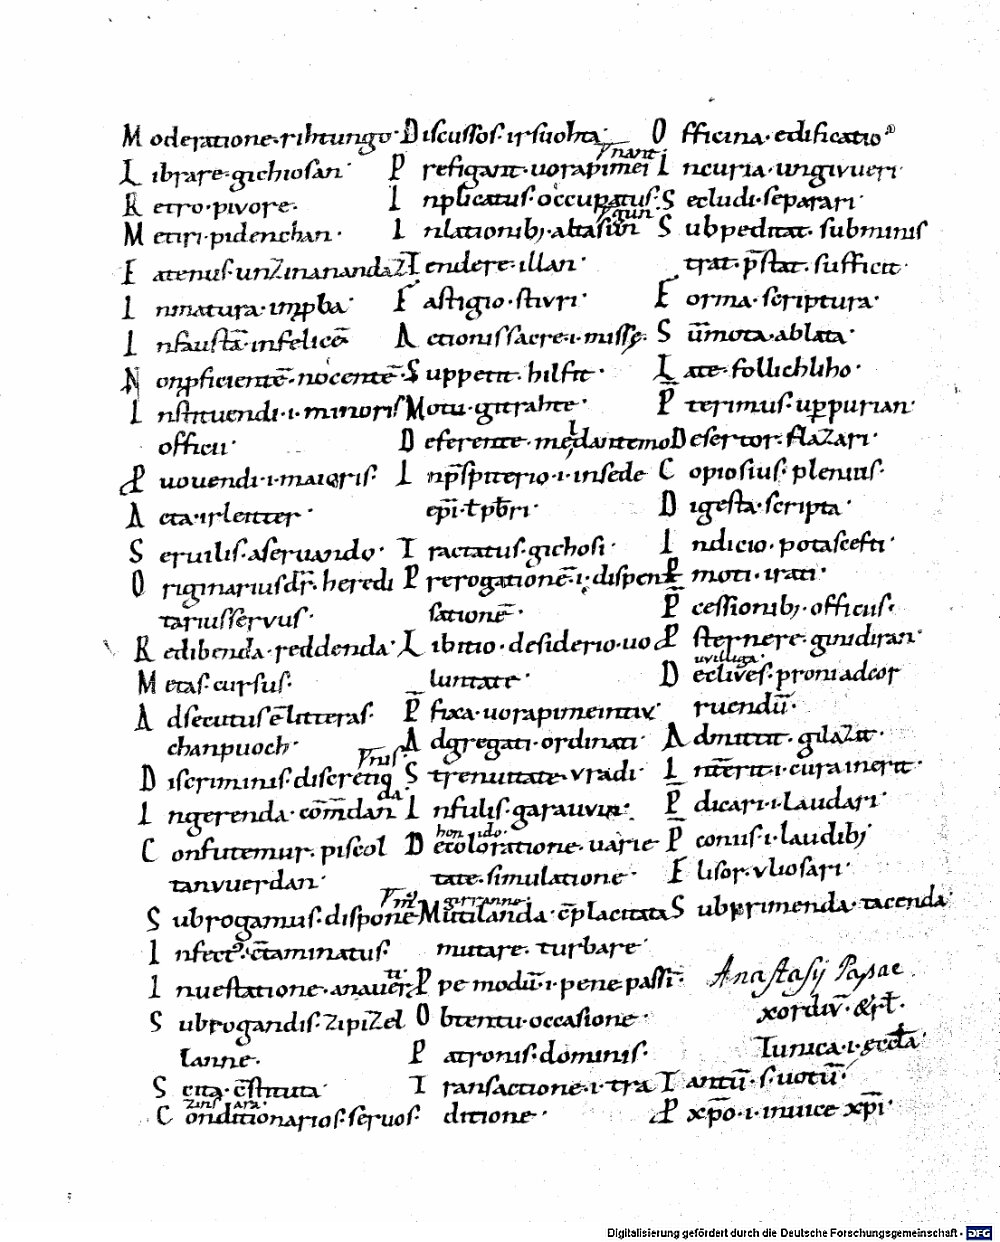 Moderatione. rihtungo·
Librare. gichiosan·
Retro. pivore.
Metiri. pidenchan.
Eatenus. unzinananda
Inmatura. inꝓba·
Infaustā. infelicē
Nonꝓficientē. nocentē.
Instituendi. i. minoris
officii·
Puouendi. i. maioris.
Acta. irleitter·
Seruilis. aseruando·
Originarius dr̄. heredi
tarius servus·
Redibenda. reddenda·
Metas. cursus.
Adsecutus ē litteras.
chanpuoch·
Discriminis. discretiq
Ingerenda. com̄dan da
Confutemur. piscol
tanvuerdan·
Subrogamus. dispone
Infect9. c̄taminatus.
Inuestatione.
Subrogandis. zipizel
lanne.
Scita. c̄stituta·
zins ara·
Conditionarios. servos.
Discussos. irsuohta·
Prefigant. uorapimei nant·
Inplicatus. occupatus.
Inlationibꝫ.
Tendere. illan·
Fastigio. stivri·
Actionis sacre. i. misse.
Suppetit. hilfit·
Motu. gitrahte·
Deferente. meldantemo
Inp̄sp̄iterio. i. insede
ep̄i. ł p̄bri·
Tractatus. gichosi·
Prerogationē. i. dispen
sationē·
Libitio. desiderio. uo
luntate·
P̄fixa. uorapimeintiv·
Adgregati. ordinati·
Strenuitate. vradi·
Infulis. garauvin·
hon ido·
Decoloratione. uarie
tate. simulatione·
girranne·
Mutilanda. c̄placitata
mutare. turbare·
Ppe modū. i. pene passī·
Obtentu. occasione·
Patronis. dominis.
Transactione. i. tra
ditione·
Officina. edificatio
Incuria. ungivueri·
Secludi. separari·
Subpeditat. subminis
trat. p̄stat. sufficit·
Forma. scriptura·
Sūmota. ablata·
Late. follichliho.
P̄terimus. uꝑpurian·
Desertor. flazari·
Copiosius. plenius.
Digesta. scripta·
Indicio. potascefti·
P̄moti. irati·
P̄cessionibꝫ. officiis.
Psternere. ginidiran·
uvilliga·
Declives. proni ad cor
ruendū·
Admittit. gilazit·
Int̄erit. i. cura inerit·
P̄dicari. i. laudari·
P̄conus. i. laudibꝫ
Elisor. vliosari·
Subprimenda. tacenda·
Anastasij Papae
xordiv̄. &rł.
Tunica. i. eccłā·
Tantū. s. uotū·
P xp̄o. i. in uice xp̄i·
Digitalisierung gefördert durch die Deutsche Forschungsgemeinschaft - DFG